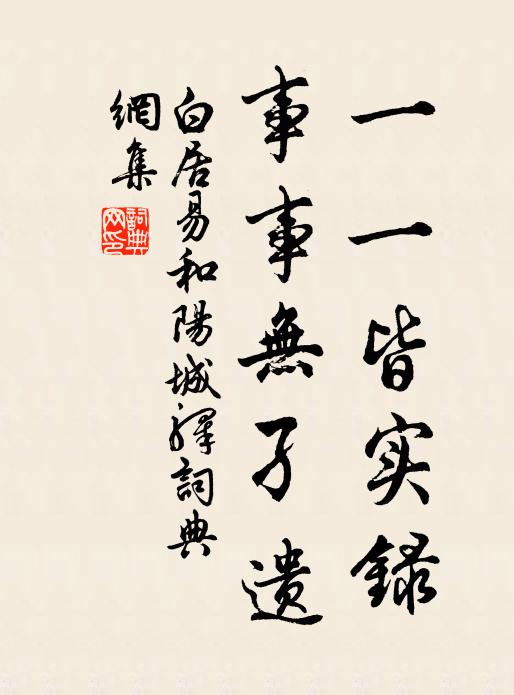 一一皆实録
事事無孑遺
白居易和陽城驛詞典
網集
詞典
网印